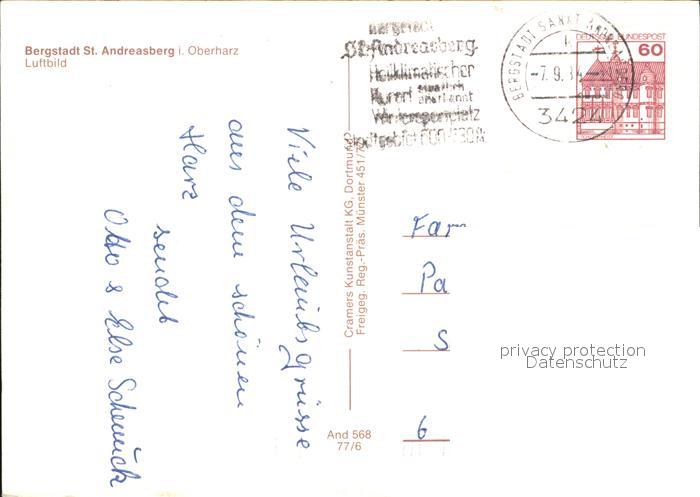 Bergstadt St. Andreasberg i. Oberharz
Luftbild
St. Andreasberg
Heilklimatischer
Kurort staatlich anerkannt
Wintersportplatz
BERGSTADT SANKT
-7.9.84-
3424
DEUTSCHE BUNDESPOST
60
Viele Urlaubsgrüsse
aus dem schönen
Harz
sendet
Otto & Else Schemück
Cramers Kunstanstalt KG, Dortmund
Freigeg. Reg.-Präs. Münster 451/7
And 568
77/6
Fam
Pa
S
6
privacy protection
Datenschutz